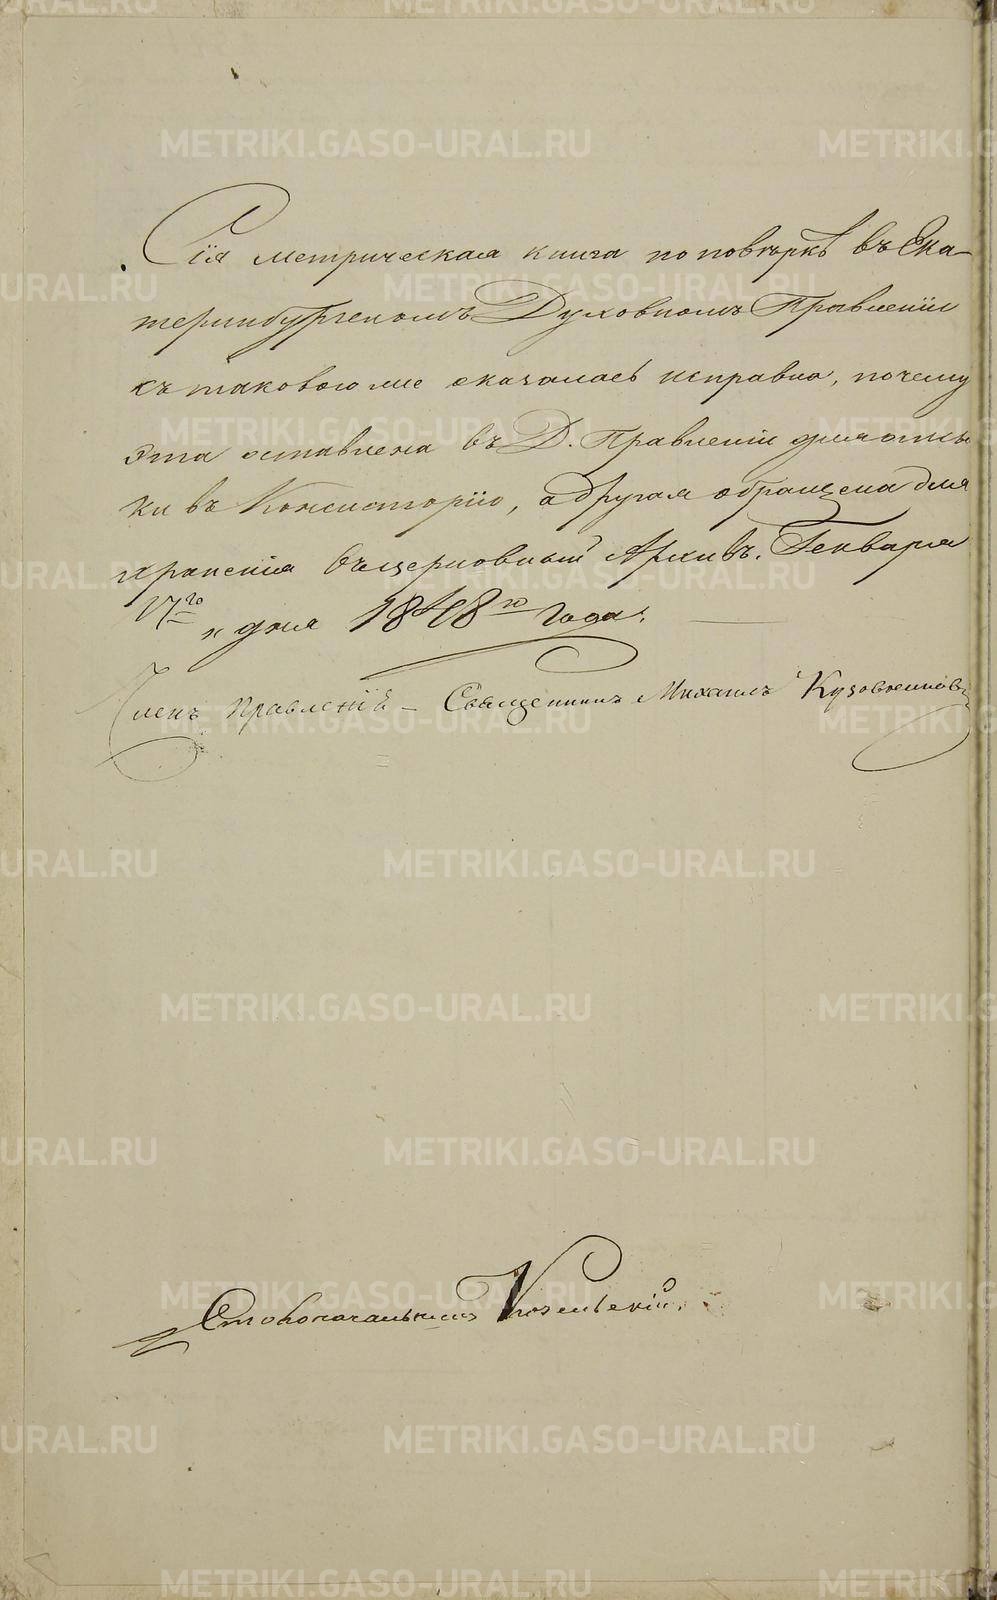 Сія метрическая книга по повѣркѣ въ Ека-
теринбургскомъ Духовномъ Правленіи
къ таковою же оказалась исправна, почему
эта оставлена въ Д. Правленіи для отсыл
ки въ Консисторію, а другая обращена для
храненія въ церковный Архивъ. Генваря
17го дня 1848го года.
Членъ Правленія – Священникъ Михаилъ Кузовниковъ
Столоначальникъ
METRIKI.GASO-URAL.RU